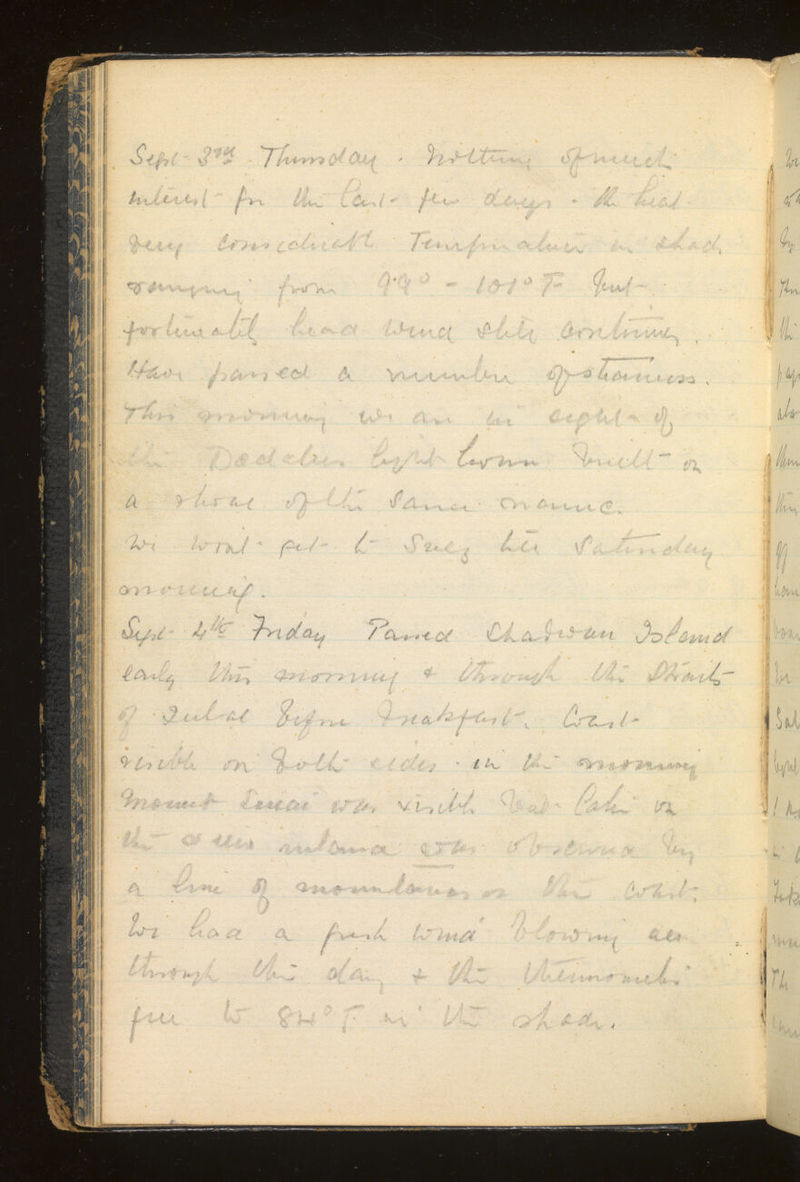 Sept 3rd Thursday. Nothing of much
interest for the last few days. the heat
very considerable Temperature in shade
ranging from 99° - 101° F but
fortunately head wind still continues.
Have passed a number of steamers.
This morning we are in sight of
the Dedalus light house built on
a shoal of the same name.
We wont get to Suez till Saturday
morning.
Sept 4th Friday Passed Shadwan Island
early this morning & through the Straits
of Jubal before breakfast. Coast
visible on both sides. in the morning
Mount Sinai was visible but later on
the view inland was obscured by
a line of mountains on the coast.
We had a fresh wind blowing all
through the day & the thermometer
fell to 84° F in the shade.